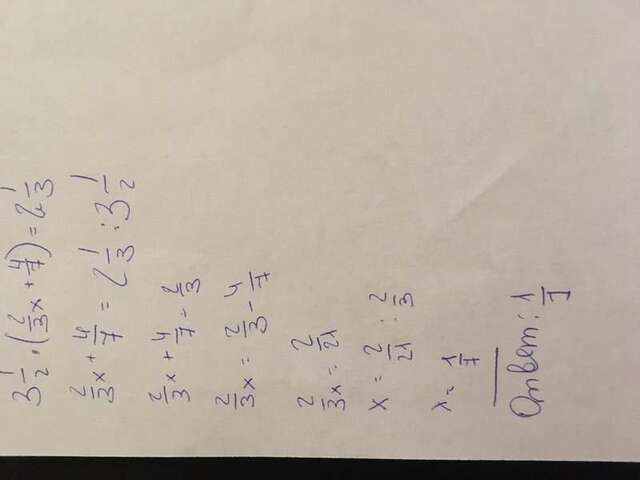 3 1/2 · (2/3x + 4/7) = 2 1/3
2/3x + 4/7 = 2 1/3 : 3 1/2
2/3x + 4/7 = 2/3
2/3x = 2/3 - 4/7
2/3x = 2/21
x = 2/21 : 2/3
x = 1/7
Ответ: 1/7